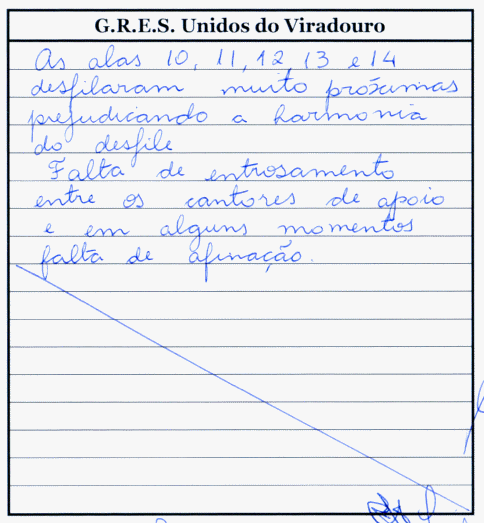 G.R.E.S. Unidos do Viradouro
As alas 10, 11, 12, 13 e 14
desfilaram muito próximas
prejudicando a harmonia
do desfile
Falta de entrosamento
entre os cantores de apoio
e em alguns momentos
falta de afinação.